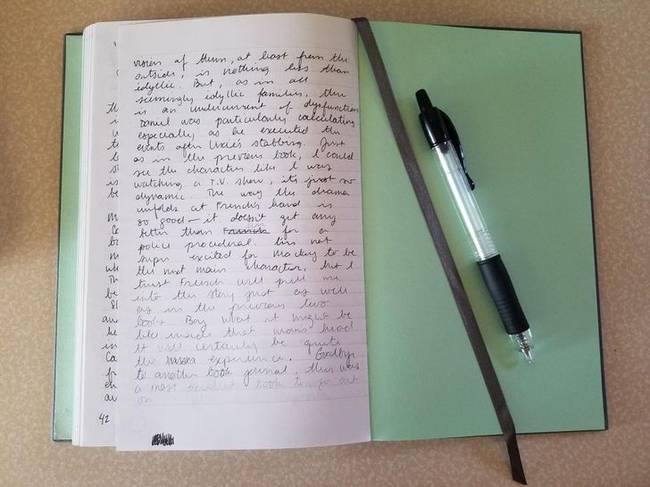 vision of them, at least from the
outside, is nothing less than
idyllic. But, as in all
seemingly idyllic families, there
is an undercurrent of dysfunction
Daniel was particularly calculating
especially as he executed the
events after Lexie's stabbing. Just
as in the previous book, I could
see the characters like I was
watching a T.V. show, it's just so
dynamic. The way the drama
unfolds at French's hand is
so good— it doesn't get any
better than for a
police procedural. I'm not
super excited for Mackey to be
the next main character, but I
trust French will pull me
into the story just as well
as in the previous two
books. Boy what it might be
like inside that man's head
it will certainly be quite
the experience. Goodbye
to another book journal, this was
a most excellent book to go out
on
42